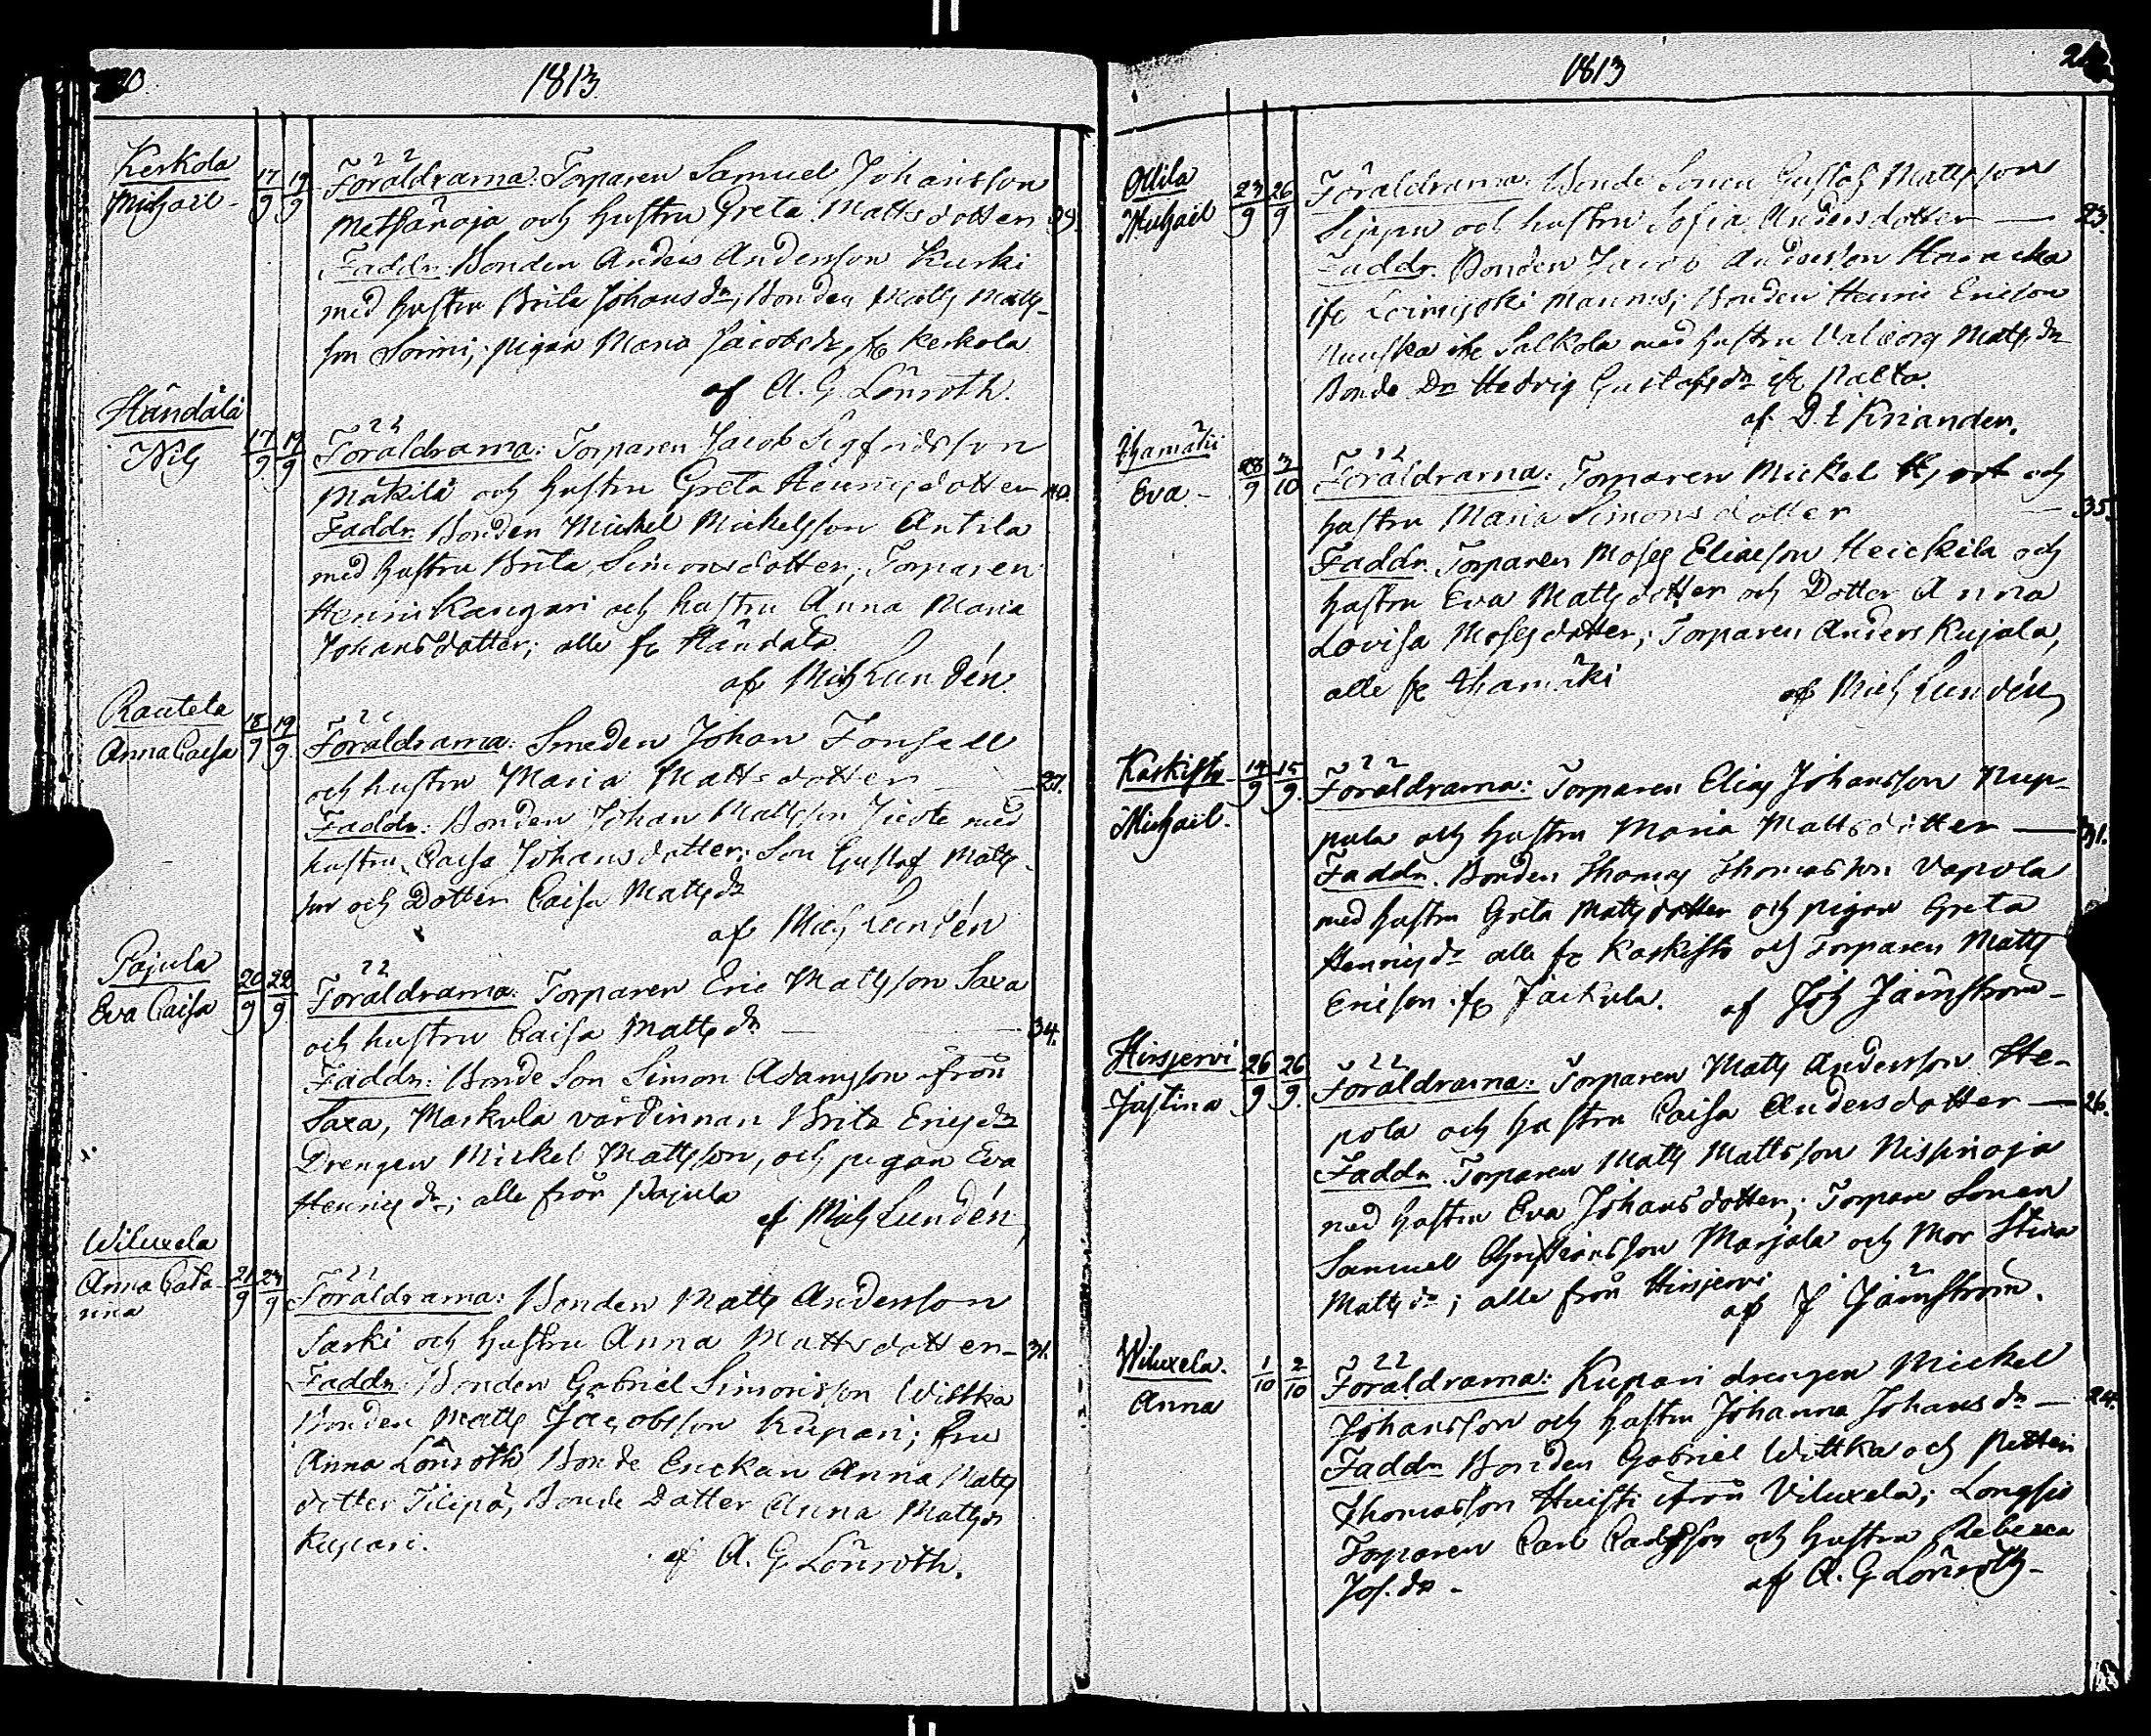 20.
1813
Kerkola
Michael
17/9 19/9
Föräldrarna: Torparen Samuel Johansson
Metsänoja och hustru Greta Mattsdotter 39.
Faddr: Bonden Anders Andersson Kurki
med hustru Brita Johansdr; Bonden Matts Matts-
son Sorini; pigan Maria Jacobsdr fr Kerkola
af A. G. Lönroth.
Händälä
Nils
17/9 19/9
Föräldrarna: Torparen Jacob Sigfridsson
Mäkilä och hustru Greta Henricsdotter 40.
Faddr: Bonden Mickel Mickelsson Antila
med hustru Brita Simonsdotter; Torparen
Henric Kangari och hustru Anna Maria
Johansdotter; alle fr Händälä.
af Mich Lundén.
Rautela
Anna Caisa
18/9 19/9
Föräldrarna: Smeden Johan Forsell
och hustru Maria Mattsdotter 27.
Faddr: Bonden Johan Mattsson med
hustru Caisa Johansdotter; Son Gustaf Matts-
son och Dotter Caisa Mattsdr
af Mich Lundén
Pajula
Eva Caisa
20/9 22/9
Föräldrarna: Torparen Eric Mattsson Saxa
och hustru Caisa Mattsdr 34.
Faddr: Bonde Son Simon Adamsson ifrån
Saxa, Markula värdinnan Brita Ericsdr
Drengen Mickel Mattsson, och pigan Eva
Henricsdr; alle från Pajula
af Mich Lundén
Wiluxela
Anna Cata-
rina
21/9 24/9
Föräldrarna: Bonden Matts Andersson
Sarki och hustru Anna Mattsdotter 31.
Faddr: Bonden Gabriel Simonsson Wittka
Bonden Matts Jacobsson Kupari; Fru
Anna Lönroth, Bonde Enckan Anna Matts
dotter Filipä, Bonde Dotter Anna Mattsdr
Kupari.
af A. G. Lönroth.
1813
Ollila
Michael
23/9 26/9
Föräldrarna: Bonde Sonen Gustaf Mattsson
Seppu och hustru Sofia Andersdotter 23.
Faddr. Bonden Jacob Andersson
ifr Loimijoki Mannis; Bonden Henric Ericson
Nuuska ifr Salkola med hustru Valborg Mattsdr
Bonde Dr Hedvig Gustafsdr ifr Palta.
af D. E Krianden.
Thamäki
Eva
28/9 3/10
Föräldrarna: Torparen Mickel Hjort och
hustru Maria Simonsdotter 35.
Faddr. Torparen Moses Eliaeson Heickilä och
hustru Eva Mattsdotter och Dotter Anna
Lovisa Mosesdotter; Torparen Anders Kujala,
alle fr Thamäki
af Mich Lundén
Kaskisto
Michael.
14/9 15/9
Föräldrarna: Torparen Elias Johansson Nup-
pula och hustru Maria Mattsdotter 31.
Faddr. Bonden Thomas Thomasson Vapola
med hustru Greta Mattsdotter och pigan Greta
Henricsdr alle fr Kaskisto och Torparen Matts
Ericson fr Jäickula. af Joh Järnström
Hirsjervi
Justina
26/9 26/9
Föräldrarna: Torparen Matts Andersson He-
pola och hustru Caisa Andersdotter 26.
Faddr. Torparen Matts Mattsson Nisspinoja
med hustru Eva Johansdotter; Torpare Sonen
Samuel Christiansson Marjala och Mor Stina
Mattsdr; alle från Hirsjervi
af J Järnström.
Wiluxela.
Anna
1/10 2/10
Föräldrarna: Kupari drengen Mickel
Johansson och hustru Johanna Johansdr 24.
Faddr Bonden Gabriel Wittka och Petter
Thomasson Huisti ifrån Viluxela; Longsio
Torparen Carl Carlsson och hustru Rebecca
Jos.dr
af A. G Lönroth